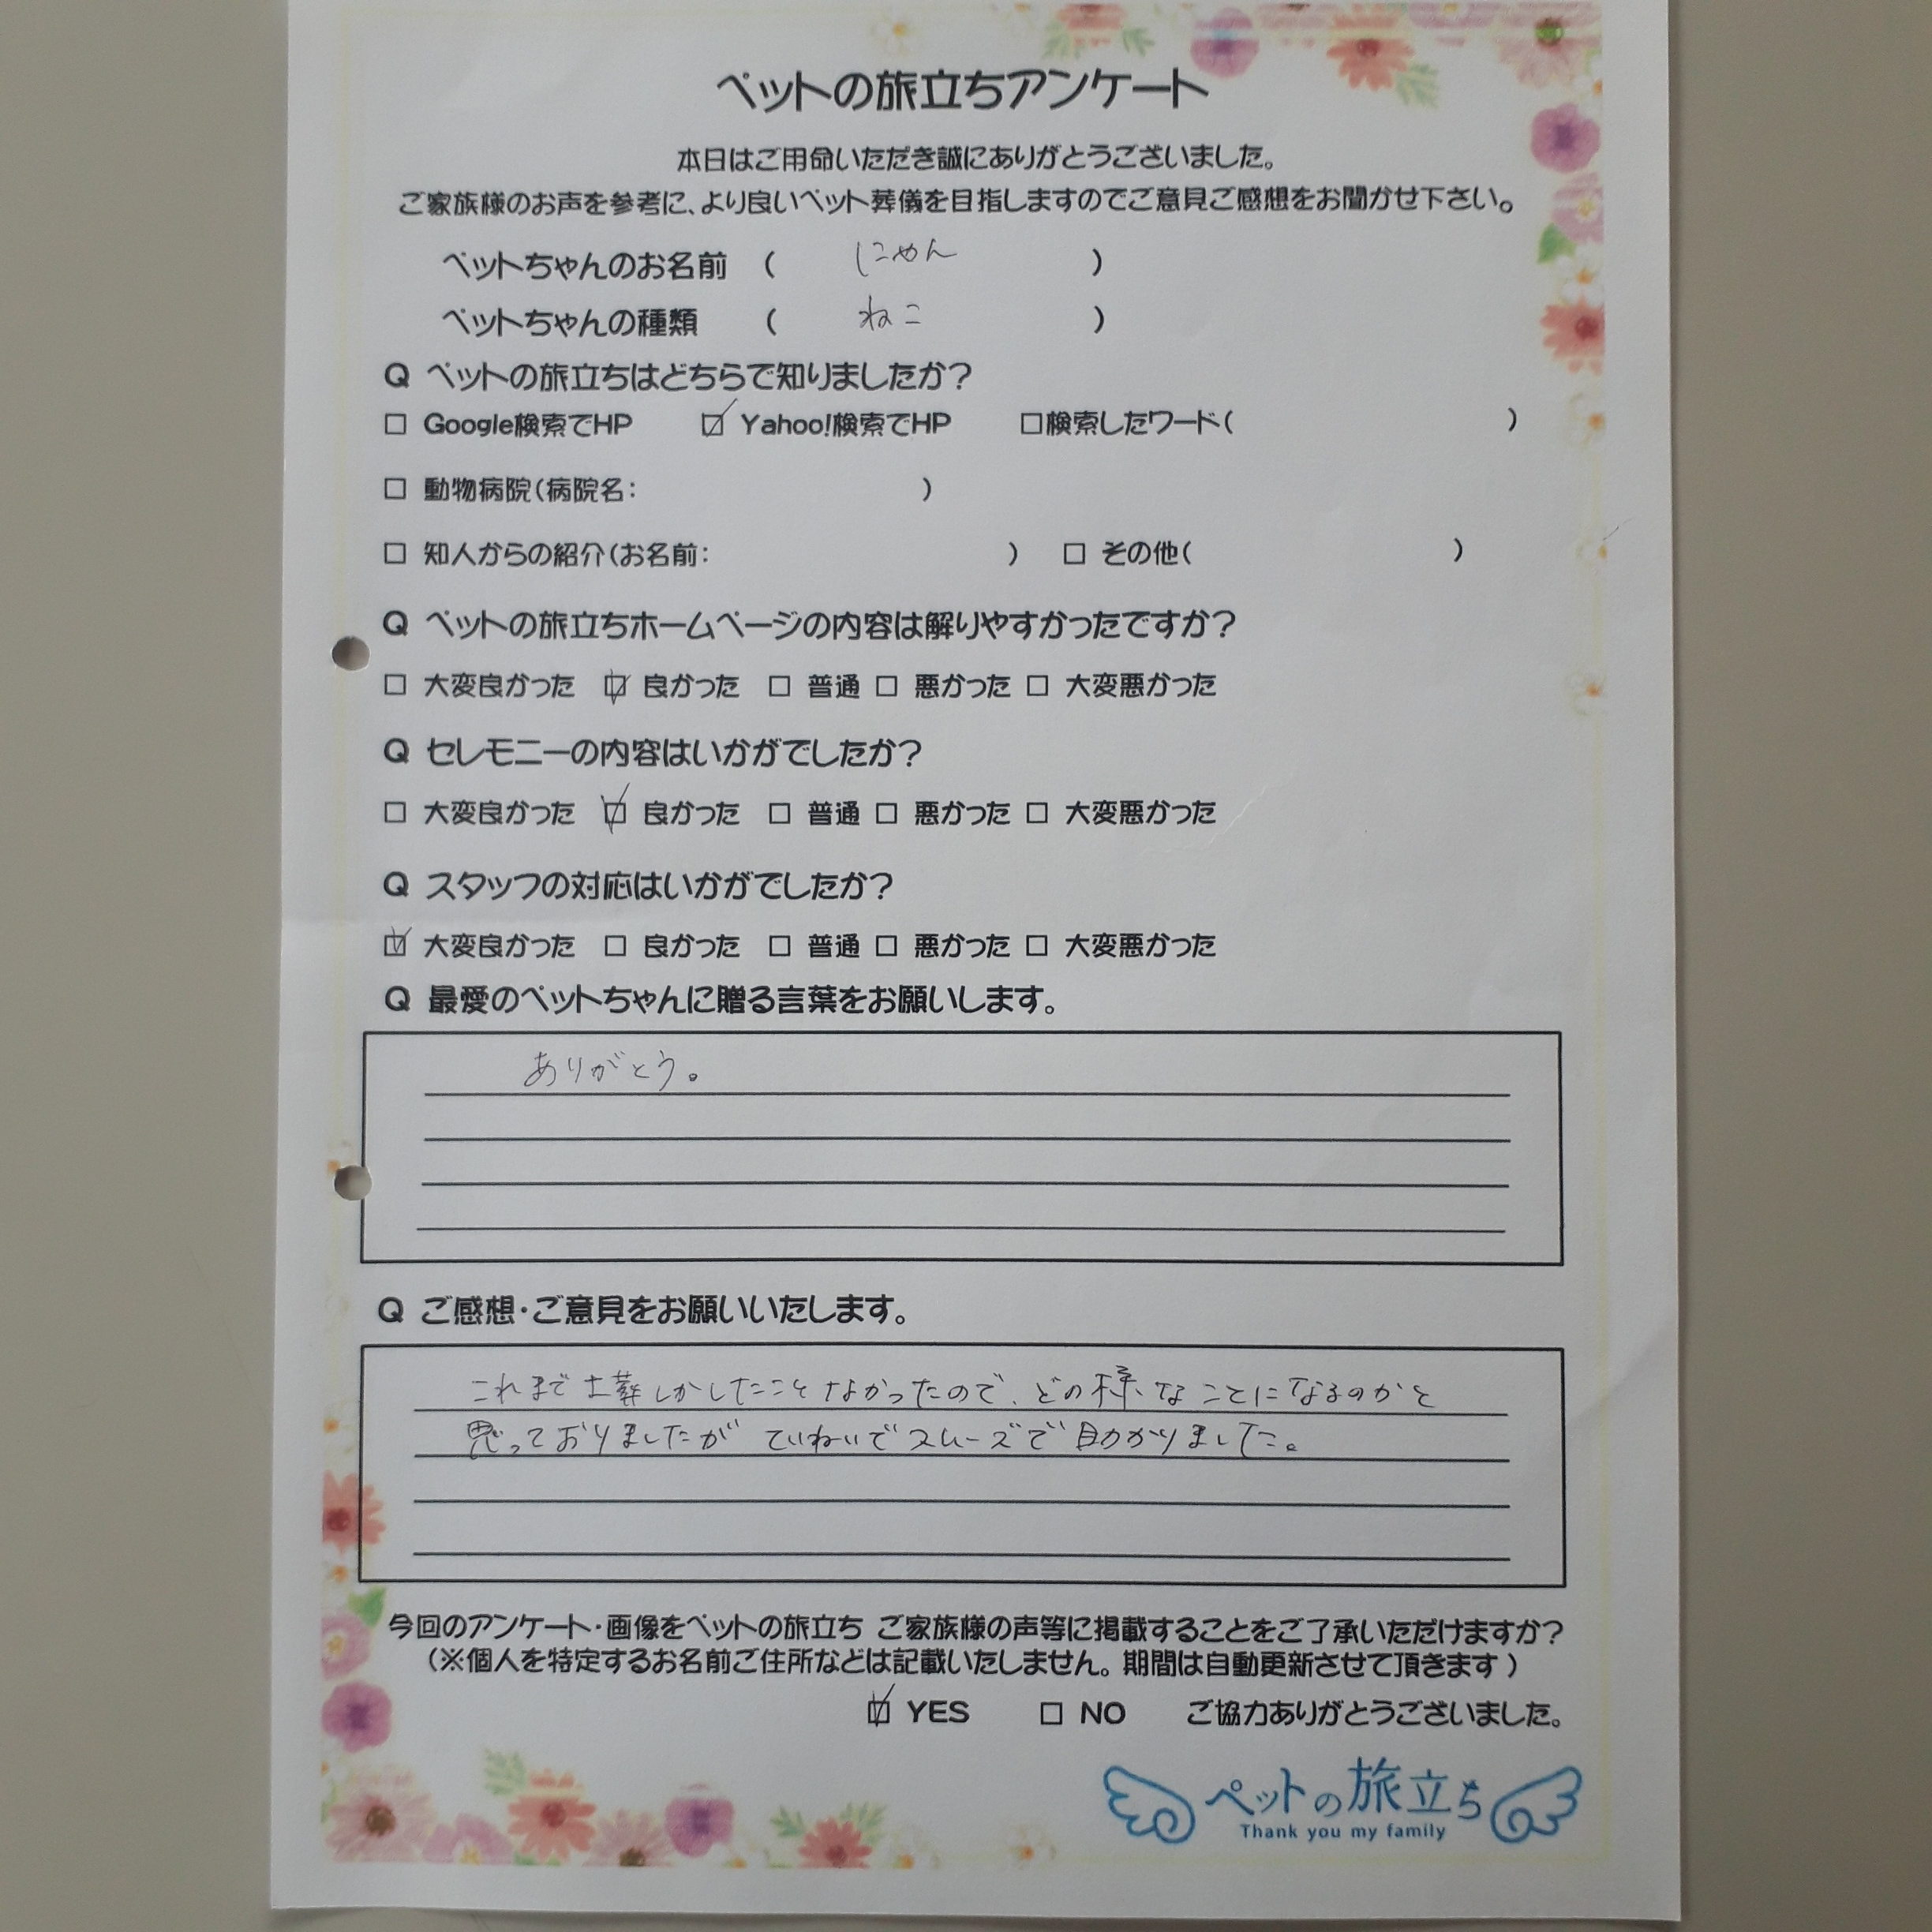 ペットの旅立ちアンケート
本日はご用命いただき誠にありがとうございました。
ご家族様のお声を参考に、より良いペット葬儀を目指しますのでご意見ご感想をお聞かせ下さい。
ペットちゃんのお名前 ( にゃん )
ペットちゃんの種類 ( ねこ )
Q ペットの旅立ちはどちらで知りましたか?
☐ Google検索でHP ☑ Yahoo!検索でHP ☐検索したワード( )
☐ 動物病院(病院名: )
☐ 知人からの紹介(お名前: ) ☐ その他( )
Q ペットの旅立ちホームページの内容は解りやすかったですか?
☐ 大変良かった ☑ 良かった ☐ 普通 ☐ 悪かった ☐ 大変悪かった
Q セレモニーの内容はいかがでしたか?
☐ 大変良かった ☑ 良かった ☐ 普通 ☐ 悪かった ☐ 大変悪かった
Q スタッフの対応はいかがでしたか?
☑ 大変良かった ☐ 良かった ☐ 普通 ☐ 悪かった ☐ 大変悪かった
Q 最愛のペットちゃんに贈る言葉をお願いします。
ありがとう。
Q ご感想・ご意見をお願いいたします。
これまで土葬しかしたことなかったので、どの様なことになるのかと
思っておりましたが ていねいでスムーズで助かりました。
今回のアンケート・画像をペットの旅立ち ご家族様の声等に掲載することをご了承いただけますか?
(※個人を特定するお名前ご住所などは記載いたしません。期間は自動更新させて頂きます)
☑ YES ☐ NO ご協力ありがとうございました。
ペットの旅立ち
Thank you my family